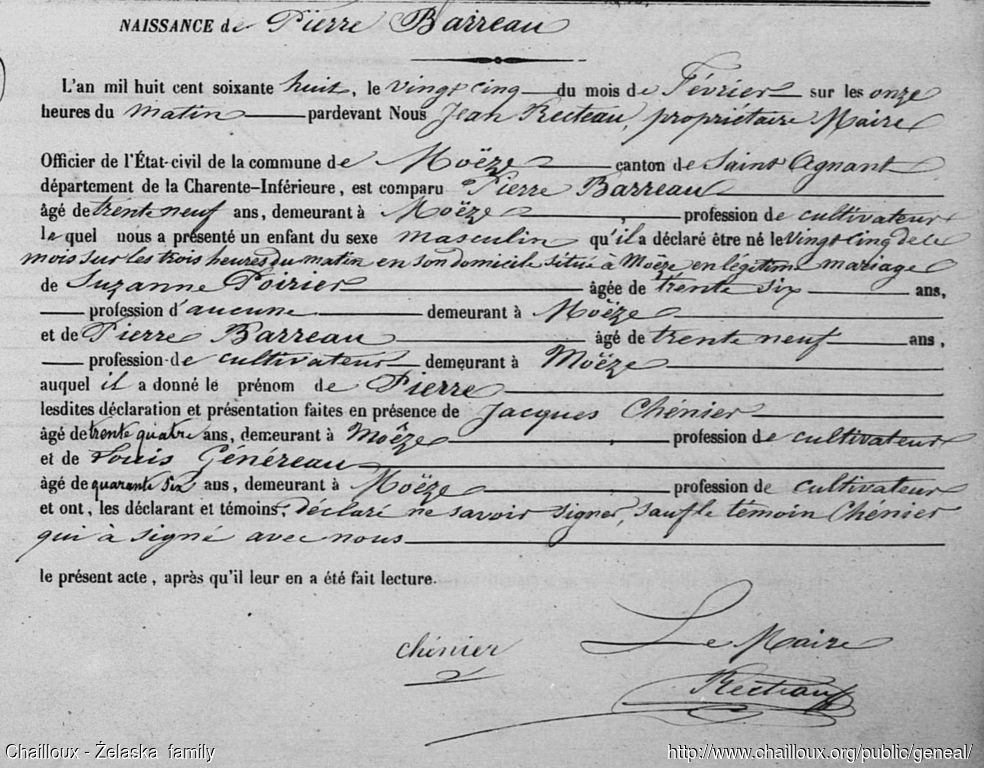 NAISSANCE de Pierre Barreau
L'an mil huit cent soixante huit, le vingt cinq du mois de Février sur les onze
heures du matin pardevant Nous Jean Recteau, propriétaire Maire
Officier de l'État-civil de la commune de Moëze canton de Saint Agnant
département de la Charente-Inférieure, est comparu Pierre Barreau
âgé de trente neuf ans, demeurant à Moëze, profession de cultivateur
lequel nous a présenté un enfant du sexe masculin qu'il a déclaré être né le vingt cinq de ce
mois sur les trois heures du matin en son domicile situé à Moëze en légitime mariage
de Suzanne Poirier âgée de trente six ans,
profession d'aucune demeurant à Moëze
et de Pierre Barreau âgé de trente neuf ans,
profession de cultivateur demeurant à Moëze
auquel il a donné le prénom de Pierre
lesdites déclaration et présentation faites en présence de Jacques Chénier
âgé de trente quatre ans, demeurant à Moëze, profession de cultivateur
et de Louis Généreau
âgé de quarante six ans, demeurant à Moëze, profession de cultivateur
et ont, les déclarant et témoins, déclaré ne savoir signer, sauf le témoin Chénier
qui à signé avec nous
le présent acte, après qu'il leur en a été fait lecture.
chénier
Le Maire
Recteau
Chailloux - Żelaska family
http://www.chailloux.org/public/geneal/